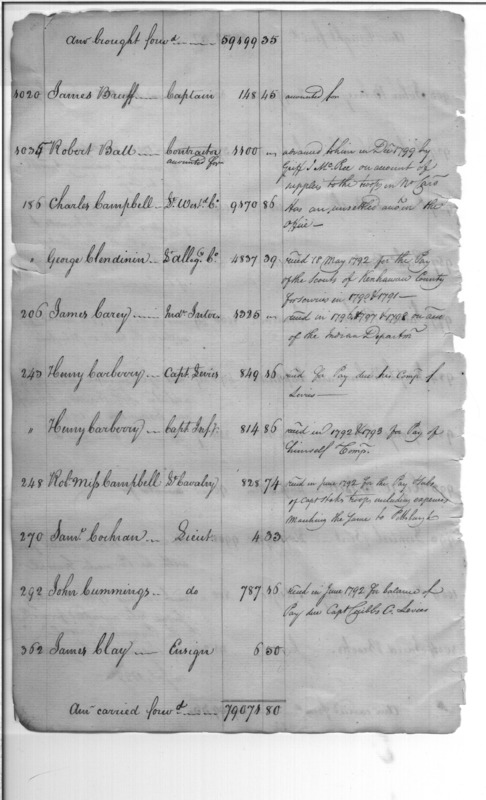 Amt brought forwd 59499 35
4020 James Bruff Captain 148 45 accounted for
4035 Robert Ball Contractor 4400 " advanced to him in Decr 1799 by
accounted for Griff J. McRee on account of
supplies to the troops in No Caro
186 Charles Campbell Lt Westd Co 9370 86 Has an unsettled accot in the
Office
" George Clendinin Lt Co 4837 39 recd 18 May 1792 for the Pay
of the Scouts of Kenhawa County
for services in 1790 & 1791
206 James Carey Inds 4325 " recd in 1792 & 1797 & 1798 on acc
of the Indian Departmt
243 Henry Carberry Capt Levies 849 46 recd for Pay due his Comp. of
Levies
" Henry Carberry Capt Infy 814 86 recd in 1792 & 1793 for Pay of
himself & Comp.
248 Robt Campbell Lt Cavalry 828 74 recd in June 1792 for the Pay
of Capt troop including expenses
Marching the same to Pittsburgh
270 Saml Cochran Lieut 4 33
292 John Cummings do 787 46 recd in June 1792 for balance of
Pay due Capt Levies
362 James Clay Ensign 6 50
Amt carried forwd 79074 80